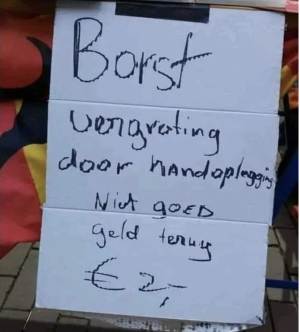 Borst
vergroting
door handoplegging
Niet GOED
geld terug
€ 2,-